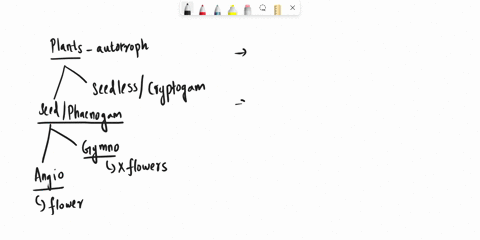 Plants - autotroph
Seedless/Cryptogam
Seed/Phaenogam
Gymno
↳ x flowers
Angio
↳ flower